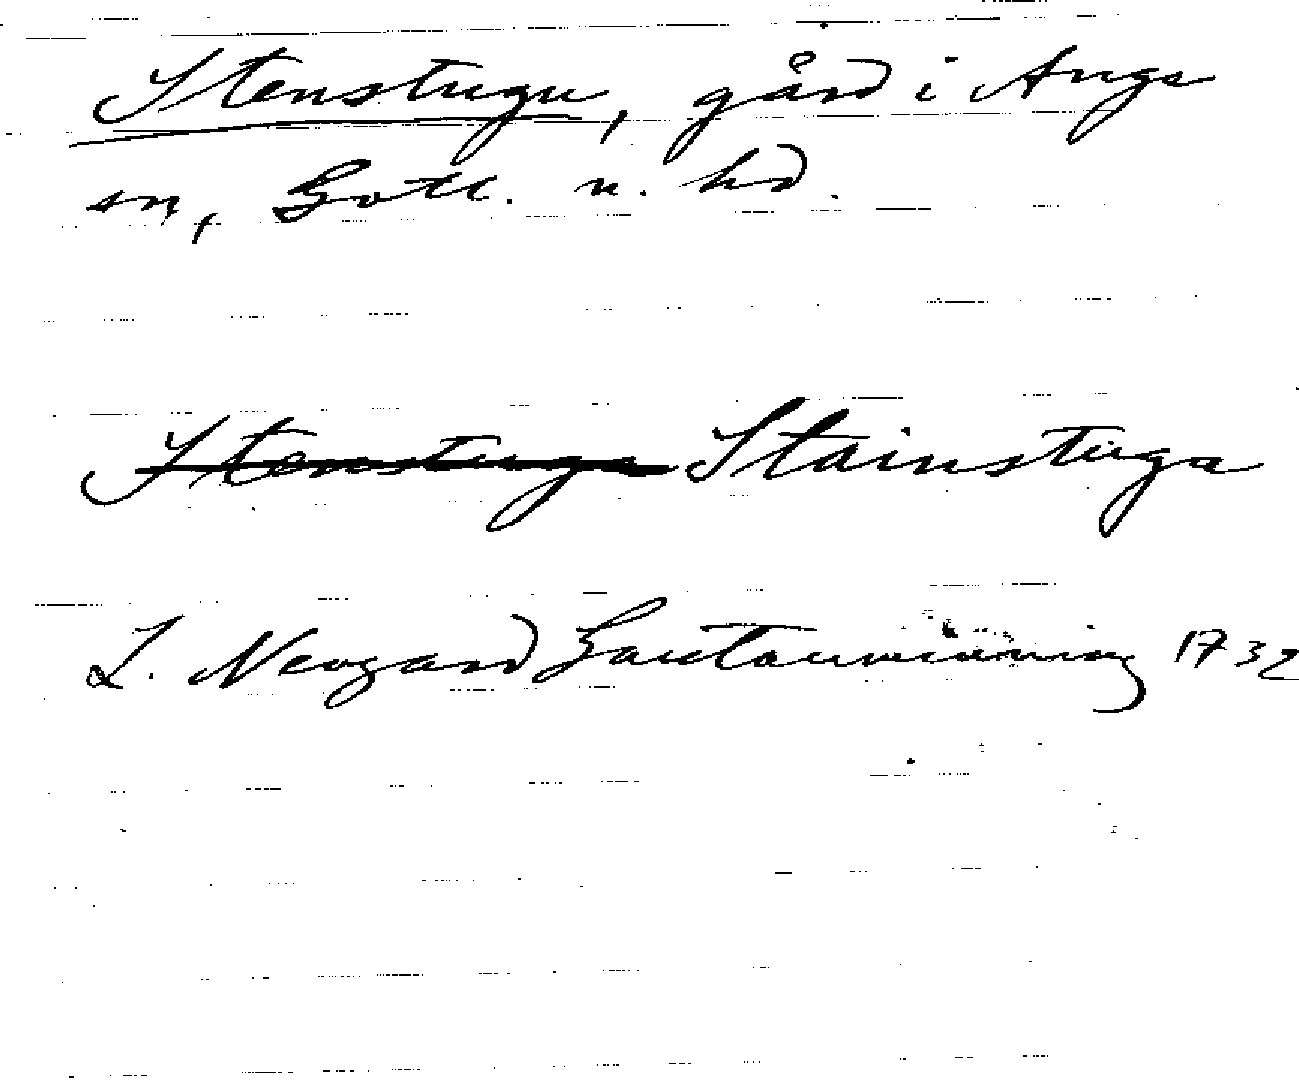 Stenstugu, gård i Anga
sn, Gotl. n. hd.
Stenstuga Stainstuga
L. Neogard Gautauminning 1732